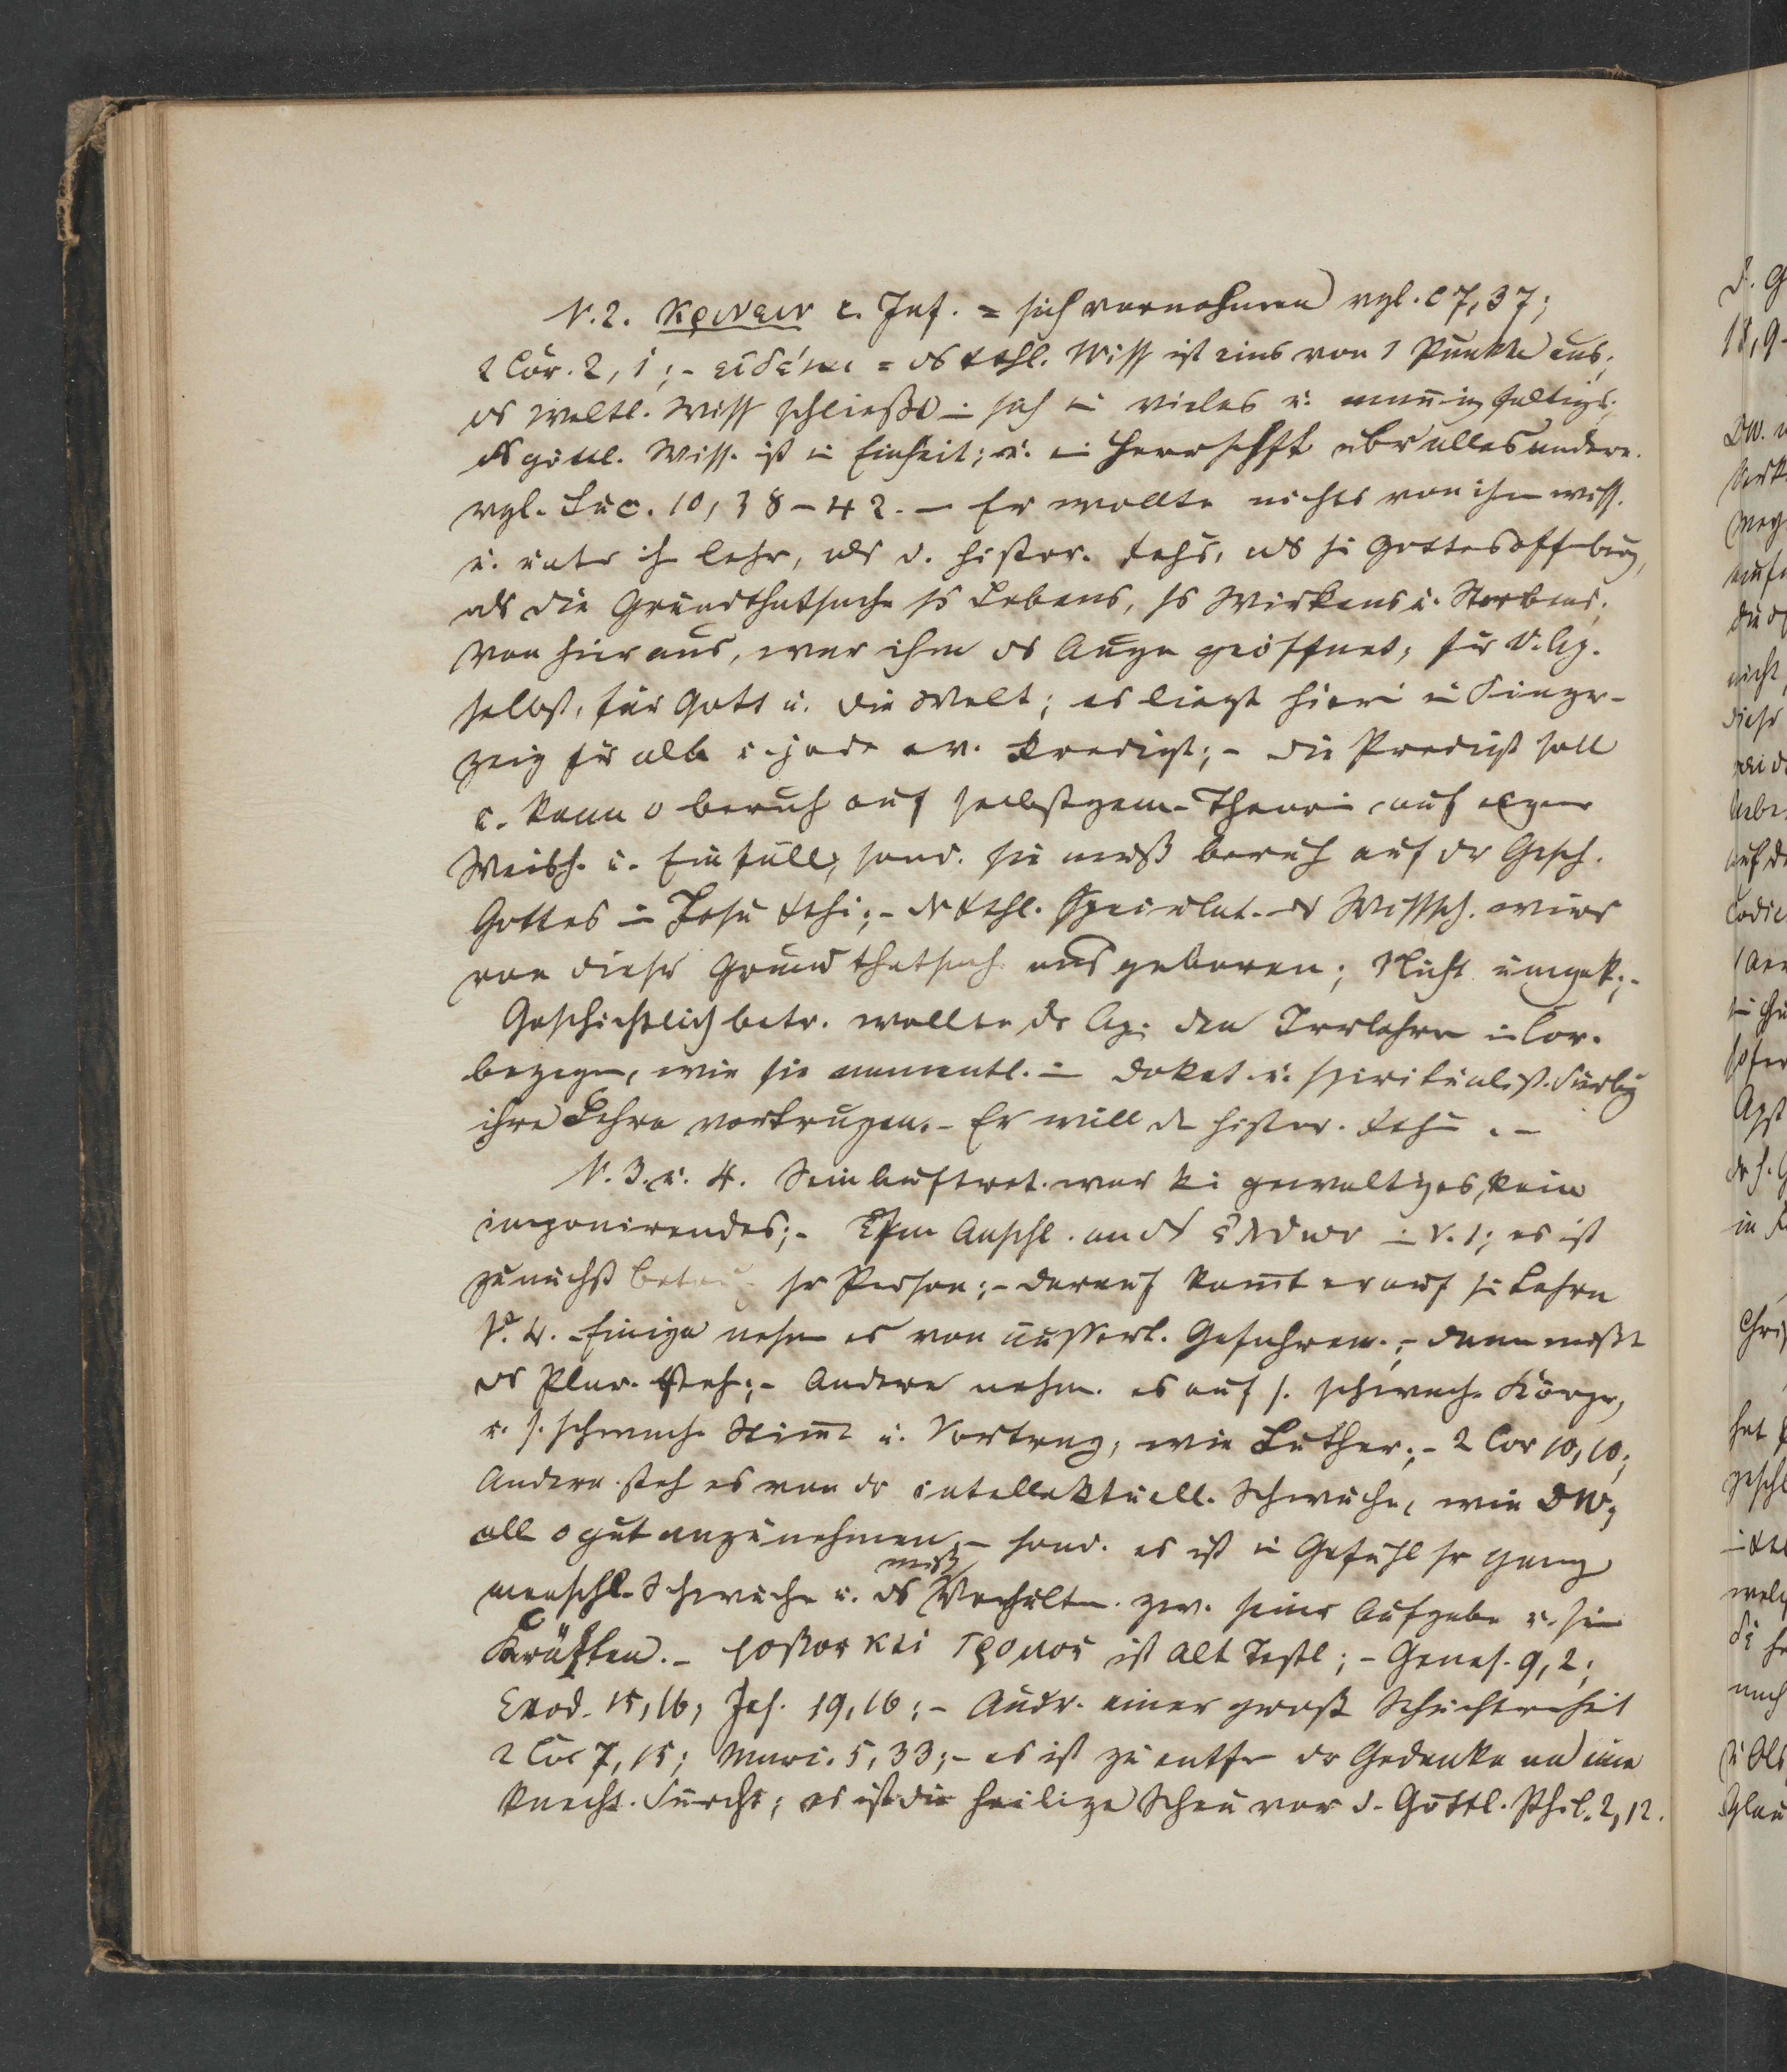 V. 2. κρινειν c. Inf. = sich vornehmen vgl. c 7, 37;
2 Cor. 2, 1; - εἰδέναι = ds Xthl. Wiss ist eins von 1 Punkte aus;
ds weltl. Wiss schließt in sich ein vieles u. mannigfaltigs;
ds göttl. Wiss. ist ein Einheit; u. ein Herrschft übr alles andere.
vgl. Luc. 10, 38-42. - Er wollte nichts von ihm wiss.
u. unter ihn lehr, als d. histor. Xthus, als sie Gottesoffenbarg,
als die Grundthatsache ss Lebens, ss Wirkens u. Sterbens;
Von hier aus, war ihm ds Auge geöffnet, für d. Ap.
selbst, für Gott u. die Welt; es liegt hierin ein Fingr-
zeig für alle u. jede ev. Predigt; - die Predigt soll
u. kann o beruh auf selbstgem. Theorie, auf eigene
Weish. u. Einfäll, sond. sie muß beruh auf dr Gesch.
Gottes in Jesu Xthi; - ds Xthl. Speculat. ds Wissch. wird
von dieser Grundthatsach aus geboren; Nicht umgek; -
Geschichtlich betr. wollte dr Ap. den Irrlehren in Cor.
begegn, wie sie namentl. in doket. u. spiritualist. Färbg
ihre Lehre vortrugen. - Er will den histor. Xthu. -
V. 3. u. 4. Sein Auftret. war kein gewaltiges, kein
imponirendes; - Im Anschl. an ds ἐλθων in V. 1; es ist
zunächst betr. sr Person; - darauf kommt er auf sein Lehre
V. 4. - Einige nehm es von äusserl. Gefahren; - dann müßte
ds Plur. steh; - Andere nehm. es auf s. schwach Körpr,
u. s. schwach Stimme u. Vortrag, wie Luther; - 2 Cor 10, 10;
Andere steh es von dr intellektuell. Schwäche, wie DW;
all o gut anzunehmen, - sond. es ist ein Gefühl sr ganz
miß
menschl. Schwäche u. ds Verhältn. zw. seiner Aufgabe u. sein
Kräften. - φοβος και τρομος ist Alt Testl; - Genes. 9, 2;
Exod. 15, 16; Jes. 19, 16; - Ausdr. einer groß Schüchternheit
2 Cor 7, 15; Marc. 5, 33; - es ist zu entfern dr Gedanke an eine
knecht. Furcht; es ist die heilige Scheu vor d. Göttl. Phil. 2, 12.